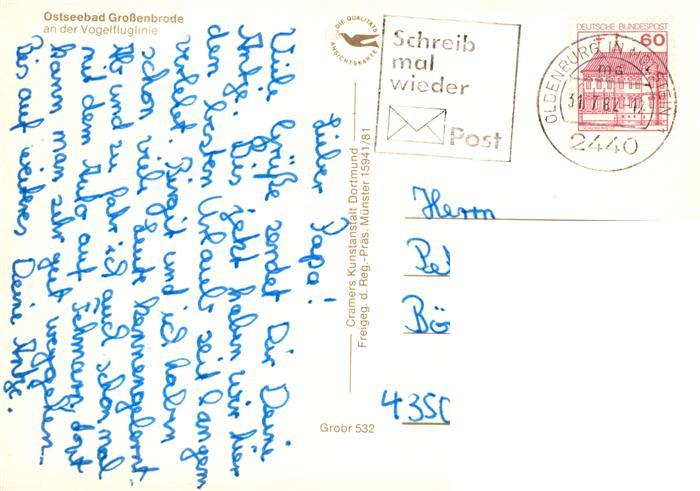 Ostseebad Großenbrode
an der Vogelfluglinie
DIE QUALITÄTS
ANSICHTSKARTE
Schreib
mal
wieder
Post
DEUTSCHE BUNDESPOST
60
OLDENBURG IN HOLSTEIN 1
ma
31.7.82-12
2440
Lieber Papa!
Viele Grüße sendet Dir Deine
Antje. Bis jetzt haben wir hier
den besten Urlaub seit langem
verlebt. Birgit und ich haben
schon viele Leute kennengelernt
Ab und zu fahr ich auch schon mal
mit dem Auto auf Fehmarn, dort
kann man sehr gut weggehen...
Bis auf weiteres Deine Antje.
Cramers Kunstanstalt Dortmund
Freigeg. d. Reg.-Präs. Münster 15941/81
Grobr 532
Herrn
Pe
Bö
4350